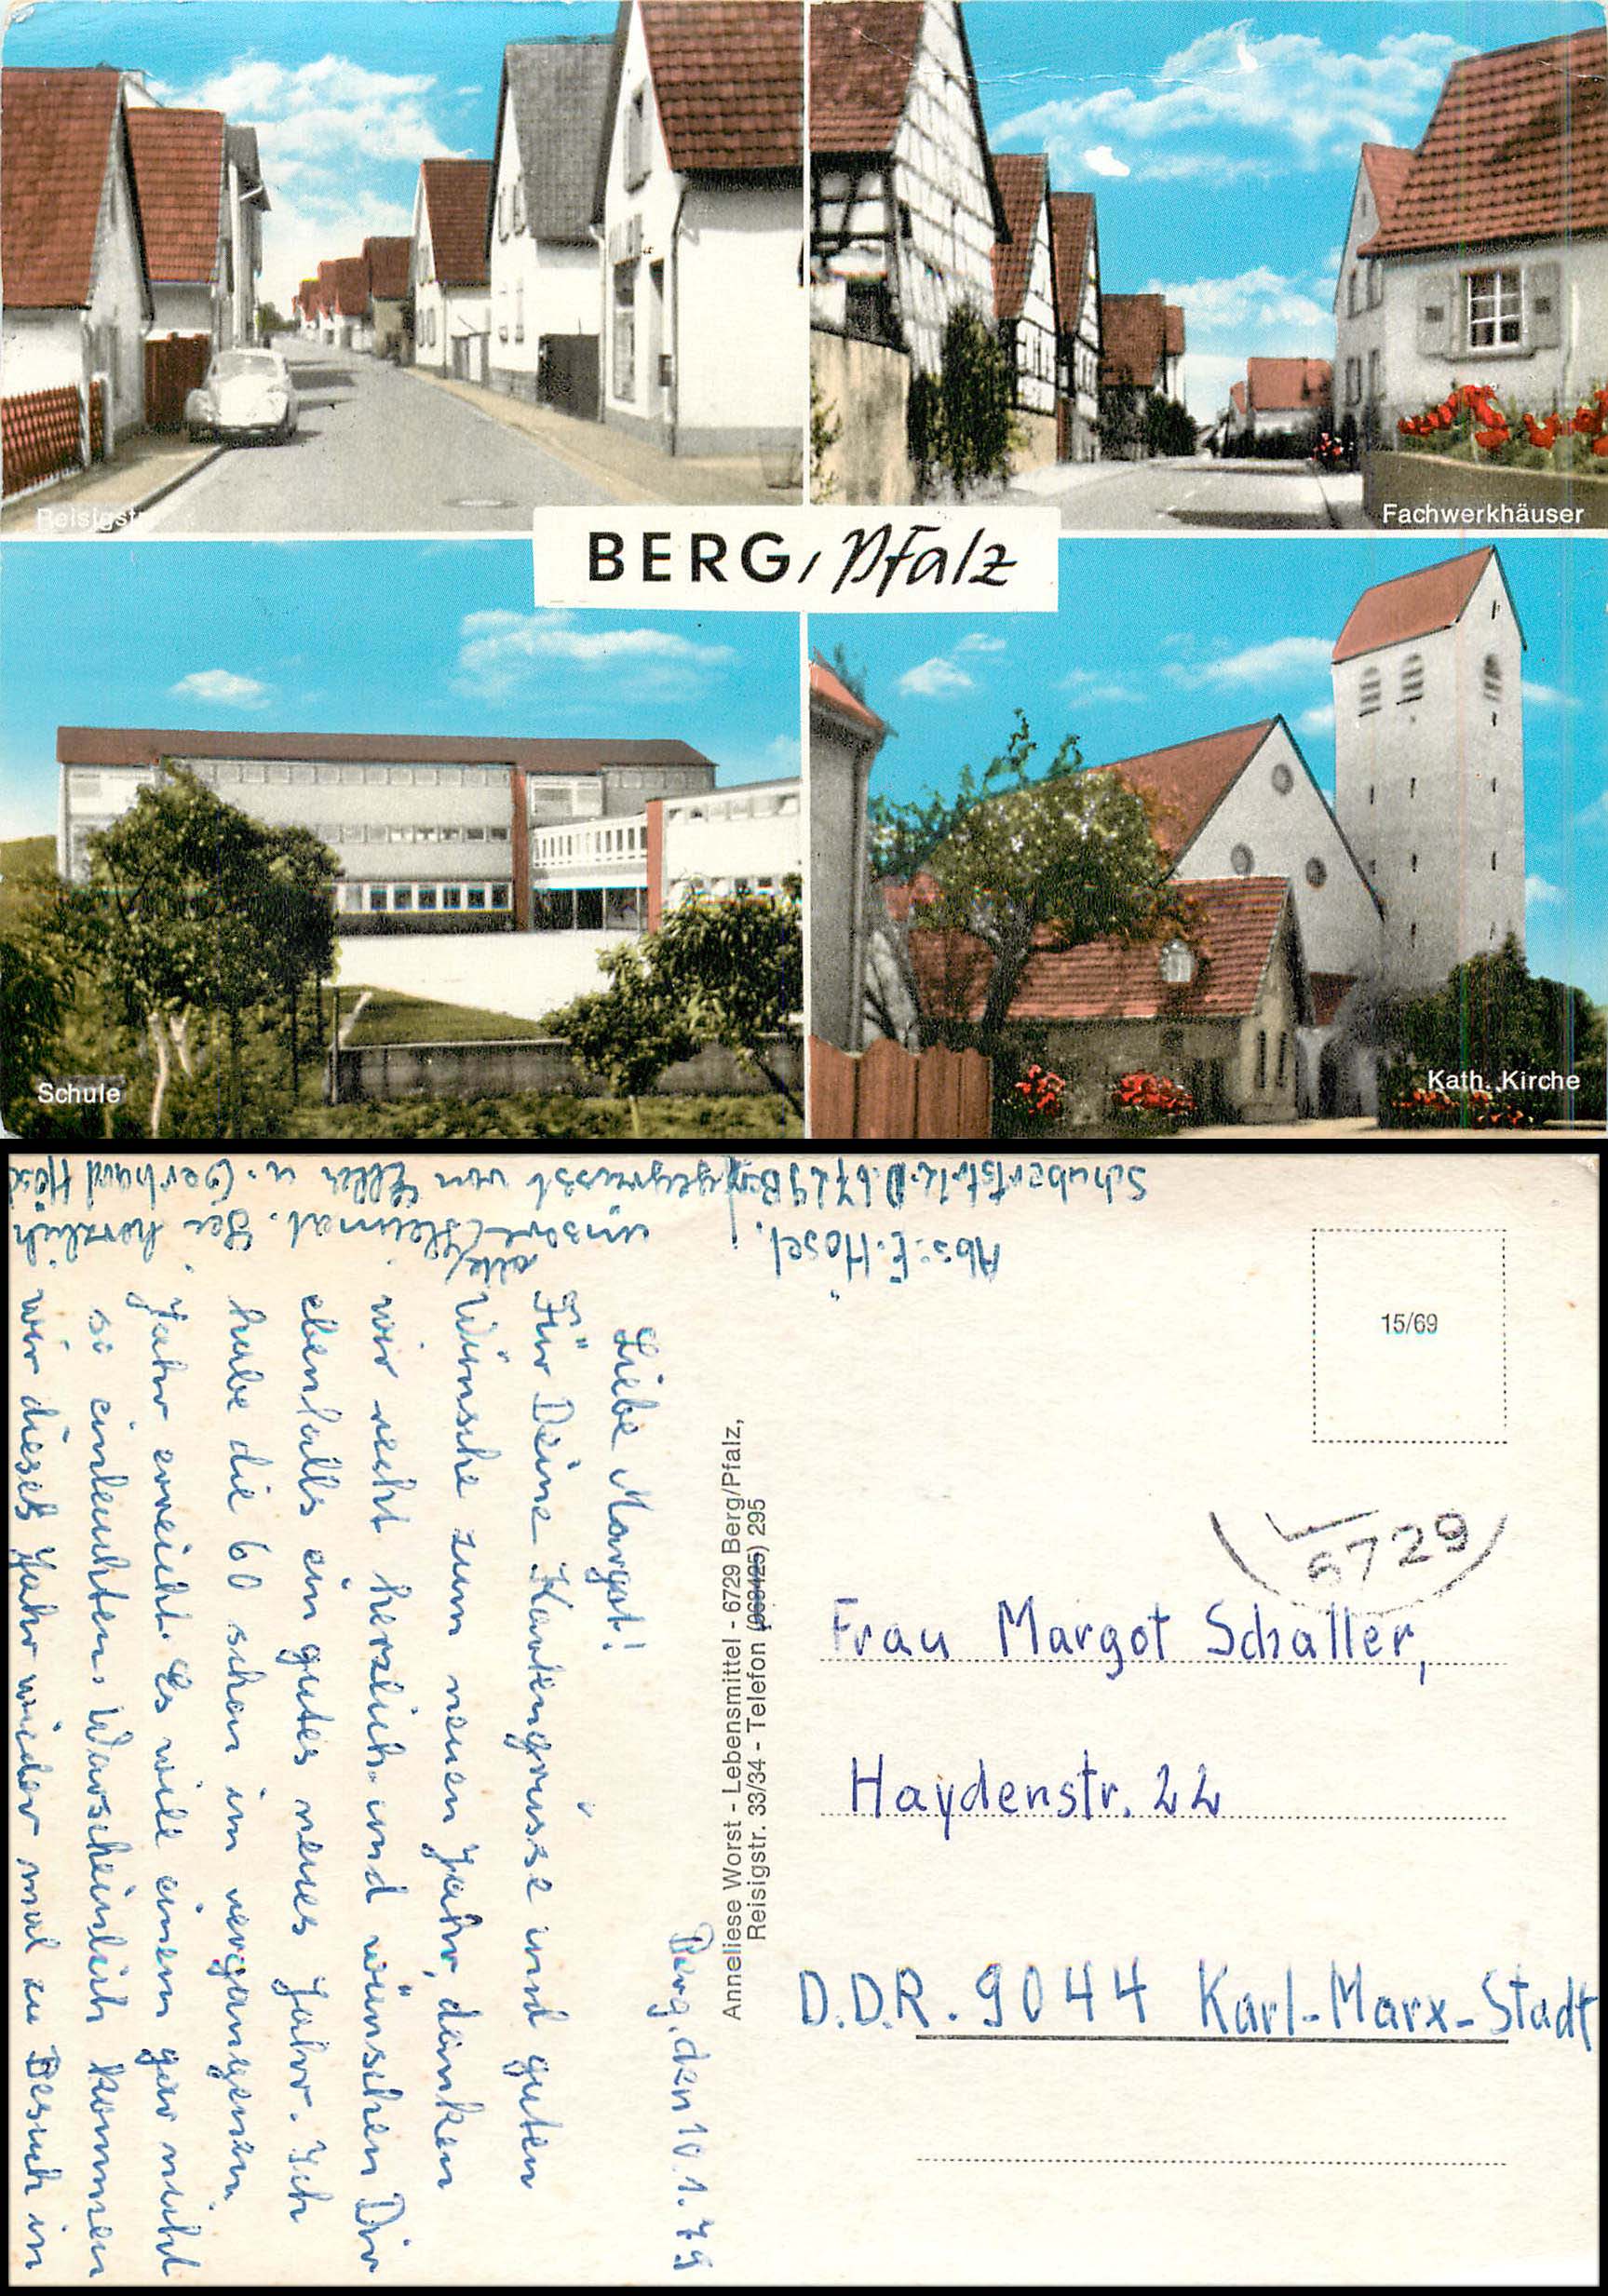 Reisigstr.
Fachwerkhäuser
BERG/Pfalz
Schule
Kath. Kirche
Berg, den 10.1.79
Liebe Margot!
Für Deine Kartengrüsse und guten
Wünsche zum neuen Jahr, danken
wir recht herzlich und wünschen Dir
ebenfalls ein gutes neues Jahr. Ich
habe die 60 schon im vergangenen
Jahr erreicht. Es will einem gar nicht
so einleuchten. Warscheinlich kommen
wir dieses Jahr wieder mal zu Besuch in
unsere alte Heimat. Sei herzlich
gegrüsst von Ellen u. Gerhard
Abs: E. Hösel.
Schubertstr. D.6729 Berg
Anneliese Worst - Lebensmittel - 6729 Berg/Pfalz,
Reisigstr. 33/34 - Telefon (068425) 295
15/69
6729
Frau Margot Schaller,
Haydenstr. 22
D.D.R. 9044 Karl-Marx-Stadt